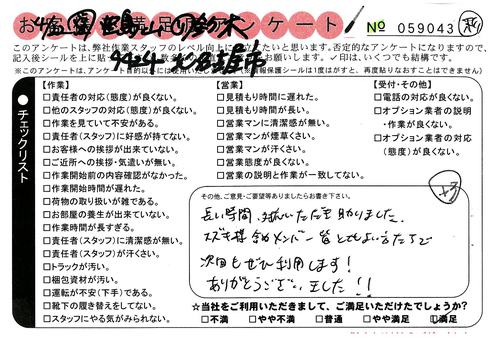 お客様満足度アンケート
No 059043
このアンケートは、弊社作業スタッフのレベル向上に
たいと思います。否定的なアンケートになりますので、
記入後シールを上に貼っ
お願いします。✓印は、いくつでも結構です。
チェックリスト
【作業】
□責任者の対応(態度)が良くない。
□他のスタッフの対応(態度)が良くない。
□作業を見ていて不安がある。
□責任者(スタッフ)に好感が持てない。
□お客様への挨拶が出来ていない。
□ご近所への挨拶・気遣いが無い。
□作業開始前の内容確認がなかった。
□作業開始時間が遅れた。
□荷物の取り扱いが雑である。
□お部屋の養生が出来ていない。
□作業時間が長すぎる。
□責任者(スタッフ)に清潔感が無い。
□責任者(スタッフ)が汗くさい。
□トラックが汚い。
□梱包資材が汚い。
□運転が不安(下手)である。
□靴下の履き替えをしてない。
□スタッフにやる気がみられない。
【営業】
□見積もり時間に遅れた。
□見積もり時間が長い。
□営業マンに清潔感が無い。
□営業マンが煙草くさい。
□営業マンが汗くさい。
□営業態度が良くない。
□営業の説明と作業が一致してない。
【受付・その他】
□電話の対応が良くない。
□オプション業者の説明
・作業が良くない。
□オプション業者の対応
(態度)が良くない。
その他、ご意見・ご要望等ありましたらお書き下さい。
長い時間、対応いただき助かりました。
スズキ様含めメンバー皆とてもよい方たちで
次回もぜひ利用します!
ありがとうございました!!
☆当社をご利用いただきまして、ご満足いただけてしょうか?
□不満 □やや不満 □普通 □やや満足 □満足